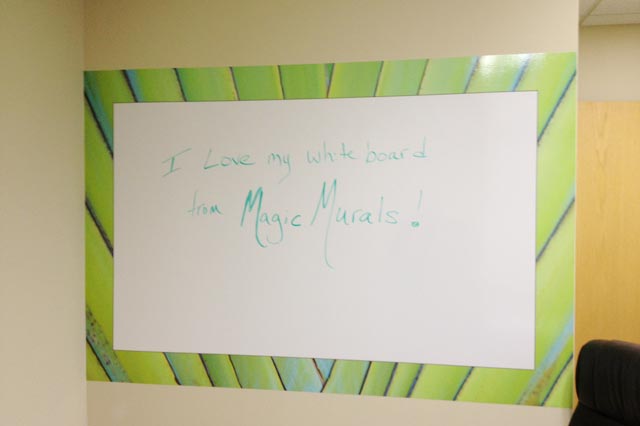 I Love my whiteboard
from Magic Murals!